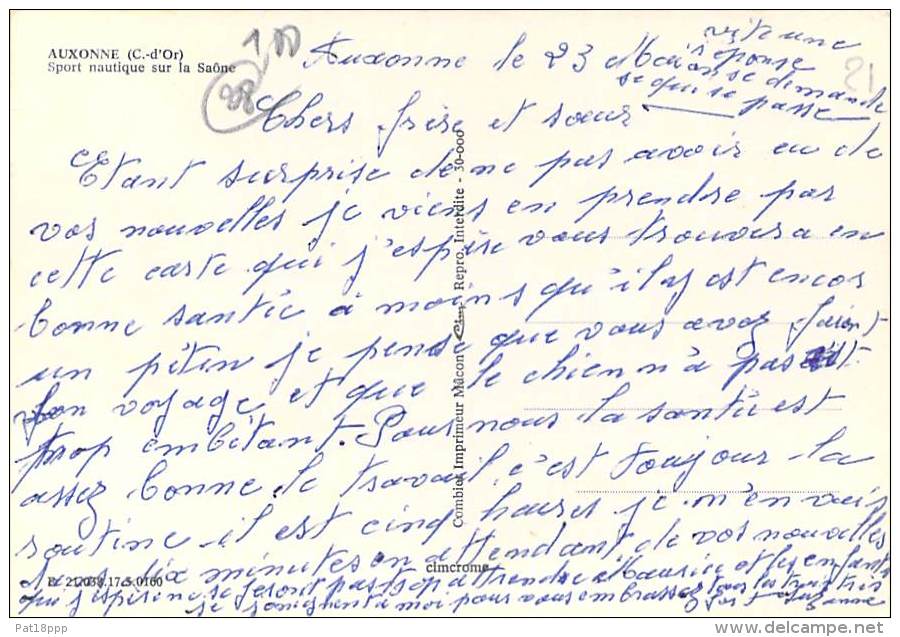 AUXONNE (C.-d'Or)
Sport nautique sur la Saône
Auxonne le 23 Mai
vite une
réponse
on se demande
se qui se passe
21
Chers frère et sœur
Etant surprise de ne pas avoir eu de
vos nouvelles je viens en prendre par
cette carte qui j'espère vous trouvera en
bonne santée à moins qu'il y est encor
un pépin je pense que vous avez fait
bon voyage et que le chien n'a pas été
trop embêtant. Pour nous la santé est
assez bonne le travail c'est toujour la
routine il est cinq heures je m'en vais
dans dix minutes en attendant de vos nouvelles
qui j'espère se feront pas trop attendre Maurice et les enfants
se joignent à moi pour vous embrasser tous les trois
Suzanne
Combier Imprimeur Mâcon "Cim" Repro. Interdite - 30-000
cimcrome
E. 21.038.17.5.0160
Pat18ppp
delcampe.net